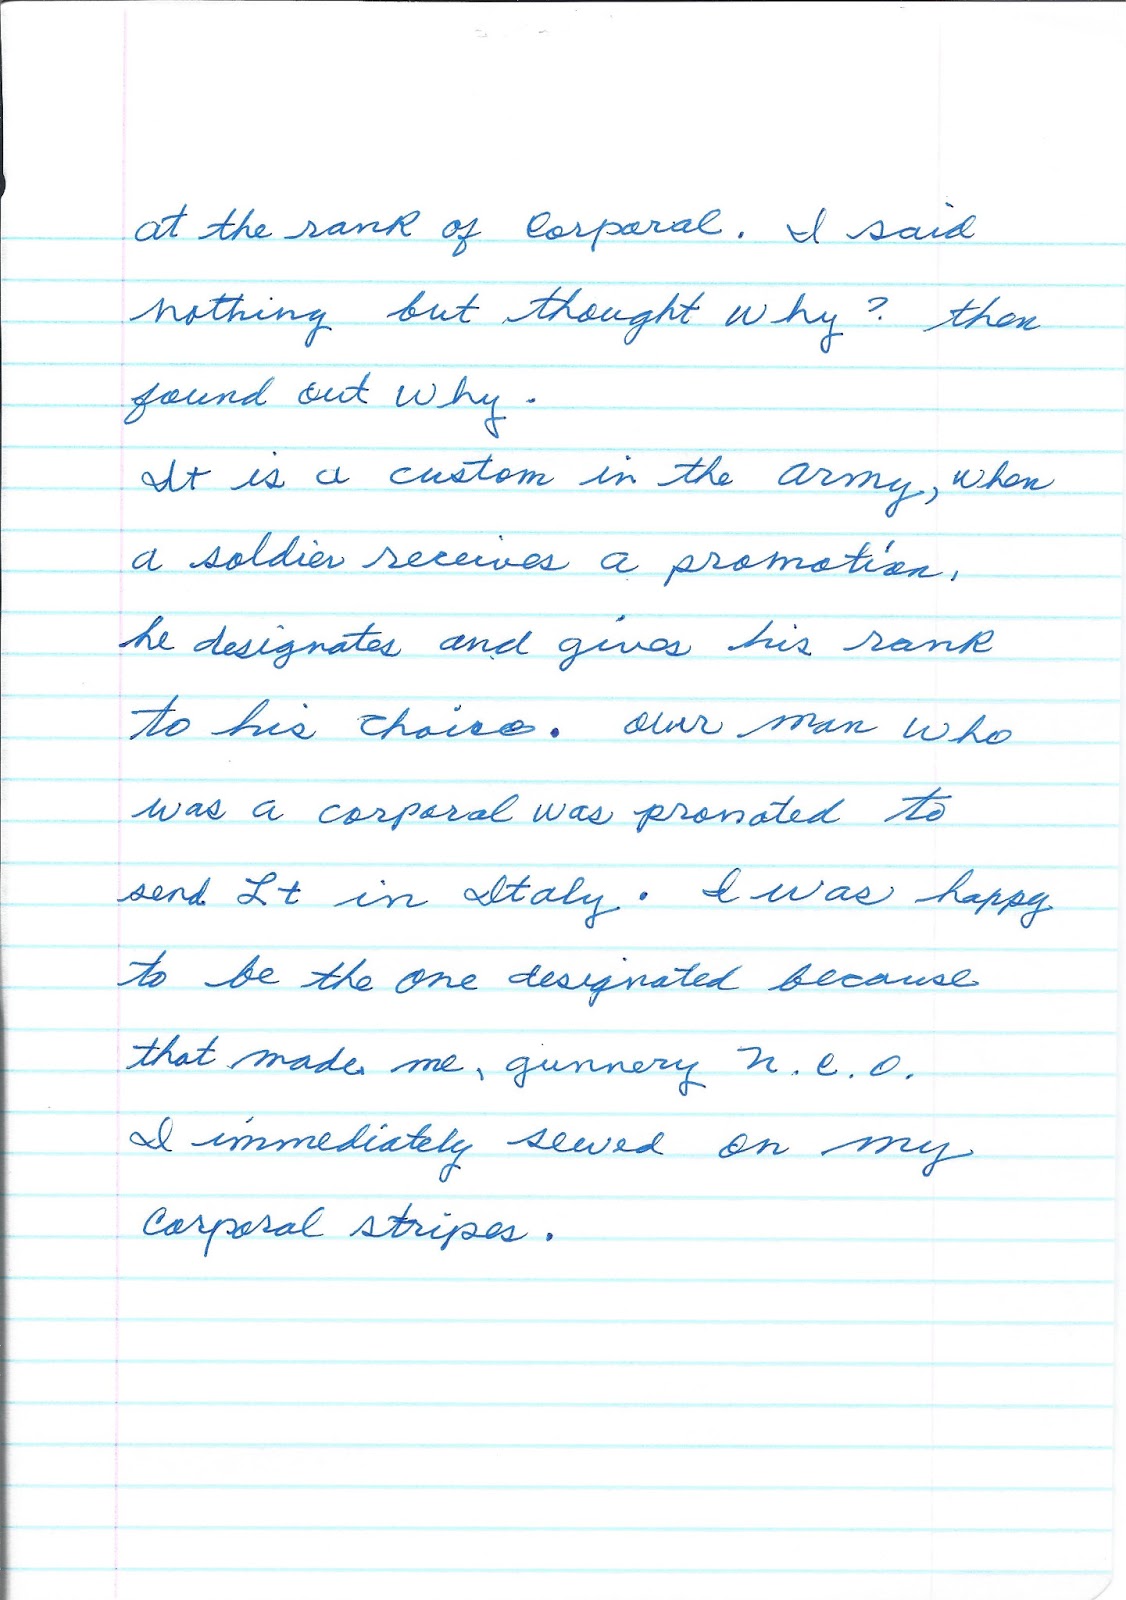 at the rank of Corporal. I said
nothing but thought why? then
found out why.
It is a custom in the army, when
a soldier receives a promotion,
he designates and gives his rank
to his choice. our man who
was a corporal was promoted to
send Lt in Italy. I was happy
to be the one designated because
that made me, gunnery N.C.O.
I immediately sewed on my
Corporal stripes.